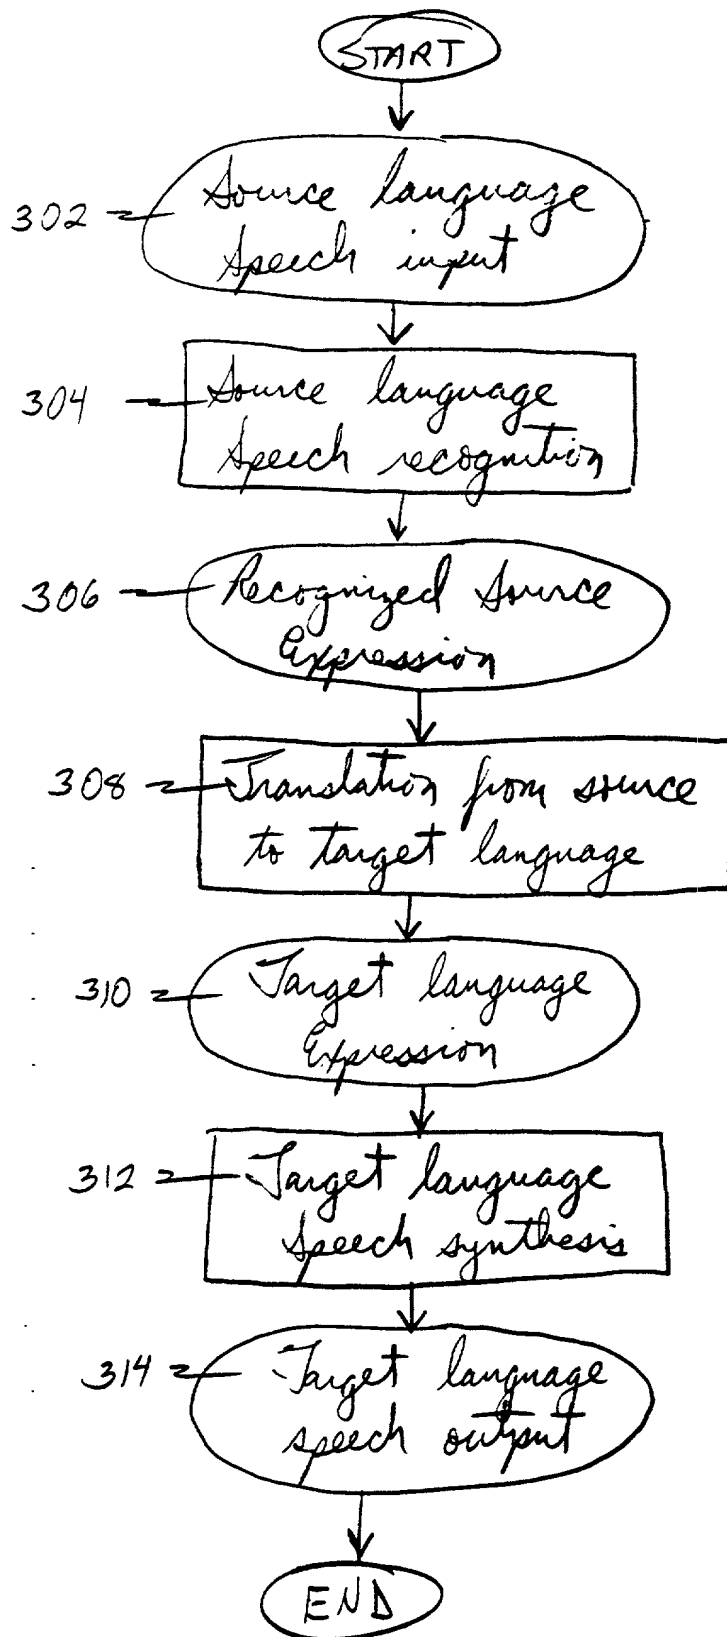 START
302
Source language
Speech input
304
Source language
Speech recognition
306
Recognized Source
Expression
308
Translation from source
to target language
310
Target language
Expression
312
Target language
Speech synthesis
314
Target language
speech output
END